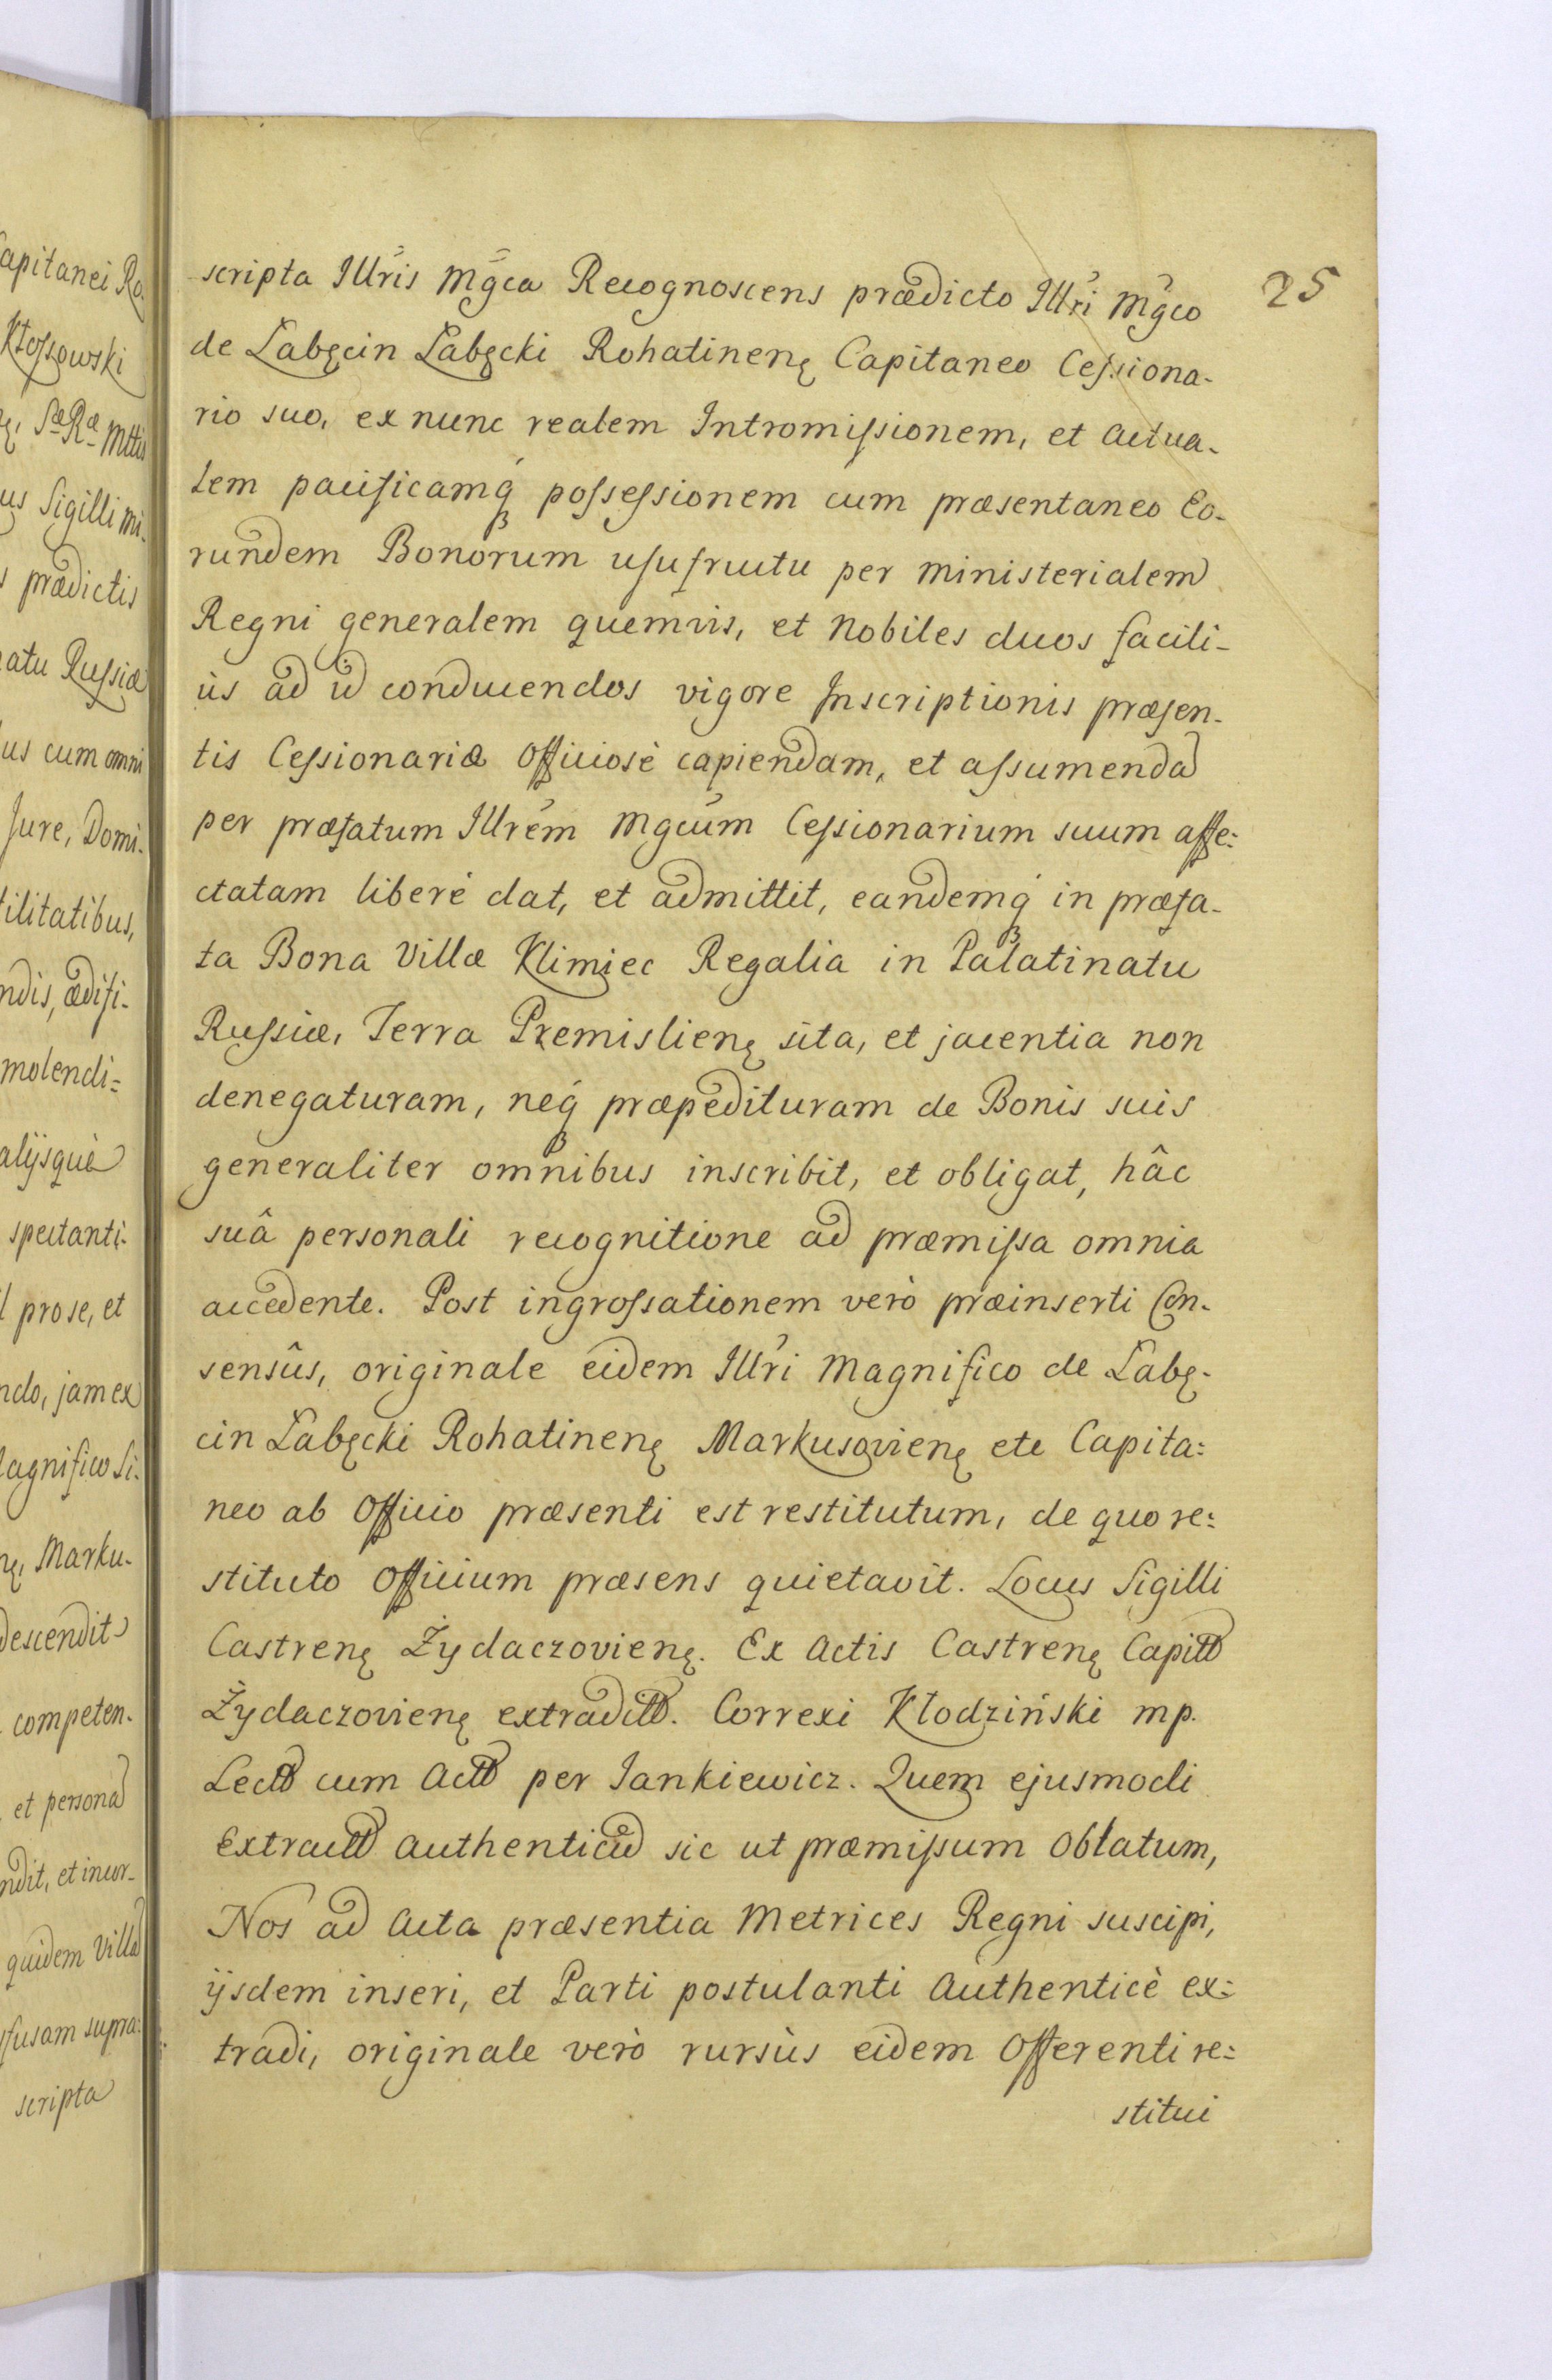 apitanei Ro.
Kłossowski
Mttis
us Sigilli mi-
prædictis
atu Russiæ
us cum omni
Jure, Domi-
tilitatibus,
ndis, ædifi-
molendi=
alijsquè
spectanti-
prose, et
ndo, jam ex
Magnifico Li-
Marku-
descendit
competen-
et persona
ndit, et incor-
quidem Villa
fusam supra=
scripta
25
scripta Illris Mgca Recognoscens prædicto Illri Mgco
de Łabęcin Łabęcki Rohatinenę Capitaneo Cessiona-
rio suo, ex nunc realem Intromissionem, et actua-
lem pacificamq́ß possessionem cum præsentaneo Eo-
rundem Bonorum usufructu per ministerialem
Regni generalem quemvis, et nobiles duos facili-
ùs ad id conducendos vigore Inscriptionis præsen-
tis Cessionariæ officiosè capiendam, et assumenda
per præfatum Illrem Mgcum Cessionarium suum affe=
ctatam liberè dat, et admittit, eandemq́ß in præfa-
ta Bona Villæ Klimiec Regalia in Palatinatu
Russiæ, Terra Premislienę sita, et jacentia non
denegaturam, neq́ß præpedituram de Bonis suis
generaliter omnibus inscribit, et obligat, hâc
suâ personali recognitione ad præmissa omnia
accedente. Post ingrossationem verò præinserti Con-
sensûs, originale eidem Illri Magnifico de Łabę-
cin Łabęcki Rohatinenę Markusovienę etc Capita=
neo ab Officio præsenti est restitutum, de quo re=
stituto Officium præsens quietavit. Locus Sigilli
Castrenę Żydaczovienę. Ex Actis Castrenę Capitt
Żydaczovienę extraditt. Correxi Kłodziński mp.
Lectt cum Actt per Jankiewicz. Quem ejusmodi
Extractt authenticu sic ut præmissum oblatum,
Nos ad Acta præsentia Metrices Regni suscipi,
ijsdem inseri, et Parti postulanti Authenticè ex=
tradi, originale verò rursùs eidem Offerenti re=
stitui